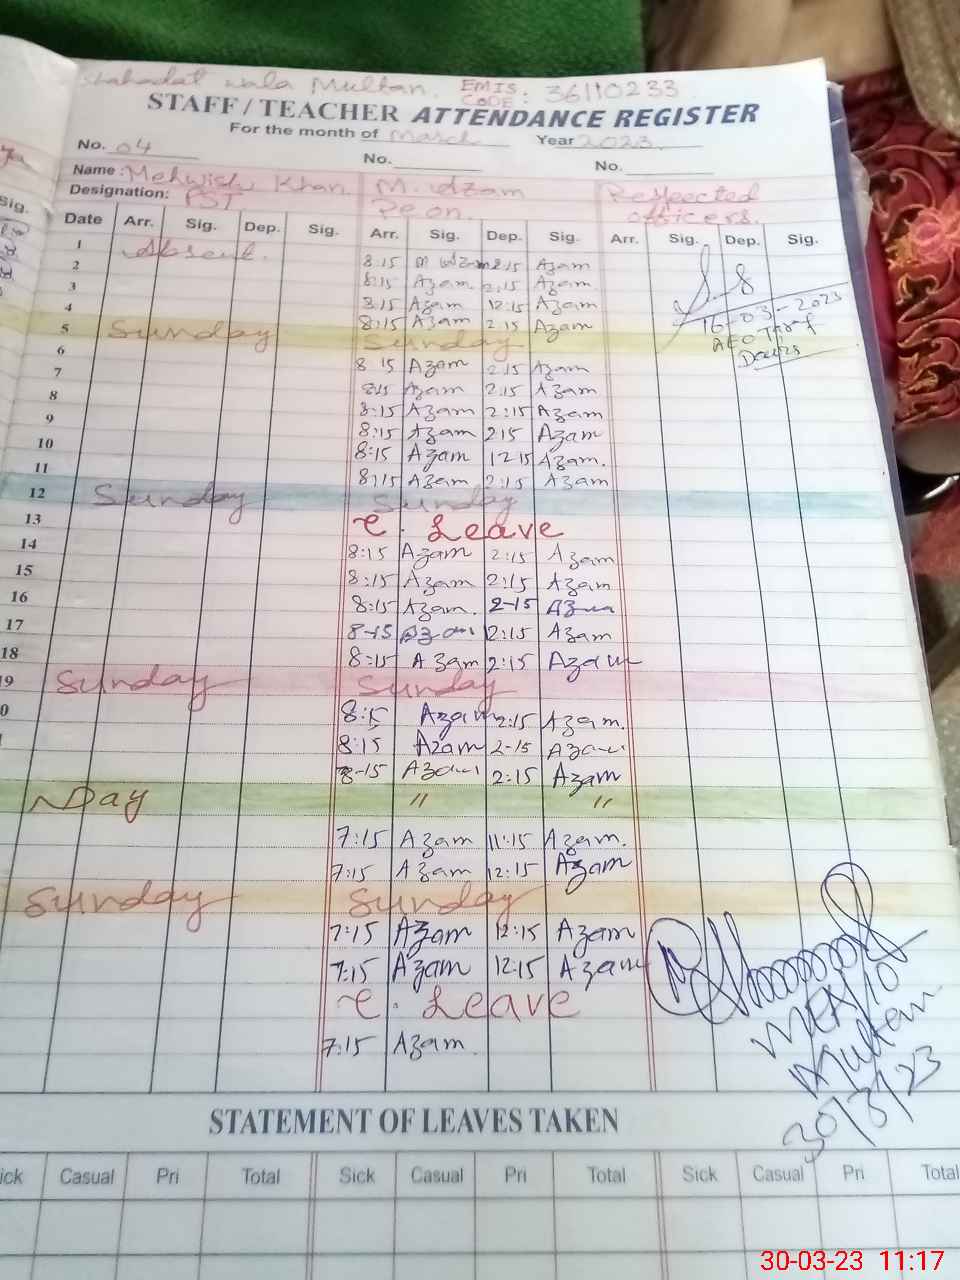 Shahadat wala Multan. EMIS CODE: 36110233
STAFF / TEACHER ATTENDANCE REGISTER
For the month of March Year 2023.
No. 04 No. No.
Name: Mehwish Khan. M. Azam Respected
Designation: PST Peon. officers.
Date Arr. Sig. Dep. Sig. Arr. Sig. Dep. Sig. Arr. Sig. Dep. Sig.
1 Absent. 8:15 M Azam 2:15 Azam
2 8:15 Azam 2:15 Azam
3 8:15 Azam 12:15 Azam
4 8:15 Azam 2:15 Azam
16-03-2023
AEO Taraf
5 Sunday Sunday
6 8 15 Azam 2:15 Azam
7 8:15 Azam 2:15 Azam
8 8:15 Azam 2:15 Azam
9 8:15 Azam 2:15 Azam
10 8:15 Azam 12 15 Azam.
11 8:15 Azam 2:15 Azam
12 Sunday Sunday
13 C. Leave
14 8:15 Azam 2:15 Azam
15 8:15 Azam 2:15 Azam
16 8:15 Azam. 2-15 Azam
17 8-15 Azam 2:15 Azam
18 8:15 Azam 2:15 Azam
19 Sunday Sunday
0 8:15 Azam 2:15 Azam.
8:15 Azam 2-15 Azam
8-15 Azam 2:15 Azam
Day " "
7:15 Azam 11:15 Azam.
7:15 Azam 12:15 Azam
Sunday Sunday
7:15 Azam 12:15 Azam
7:15 Azam 12:15 Azam
C. Leave
7:15 Azam.
Multan
30/3/23
STATEMENT OF LEAVES TAKEN
ick Casual Pri Total Sick Casual Pri Total Sick Casual Pri Total
30-03-23 11:17